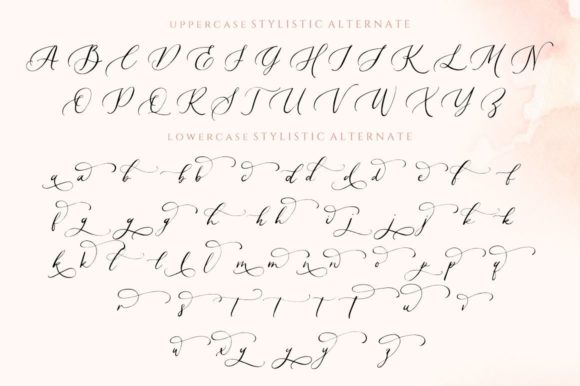 UPPERCASE STYLISTIC ALTERNATE
A B C D E F G H I J K L M N
O P Q R S T U V W X Y Z
LOWERCASE STYLISTIC ALTERNATE
a b b b c d d d d e f f
f g g g h h h i j j j k k
k k l l l l m m n n o p p q
r s t t t t u v
w x y y y z